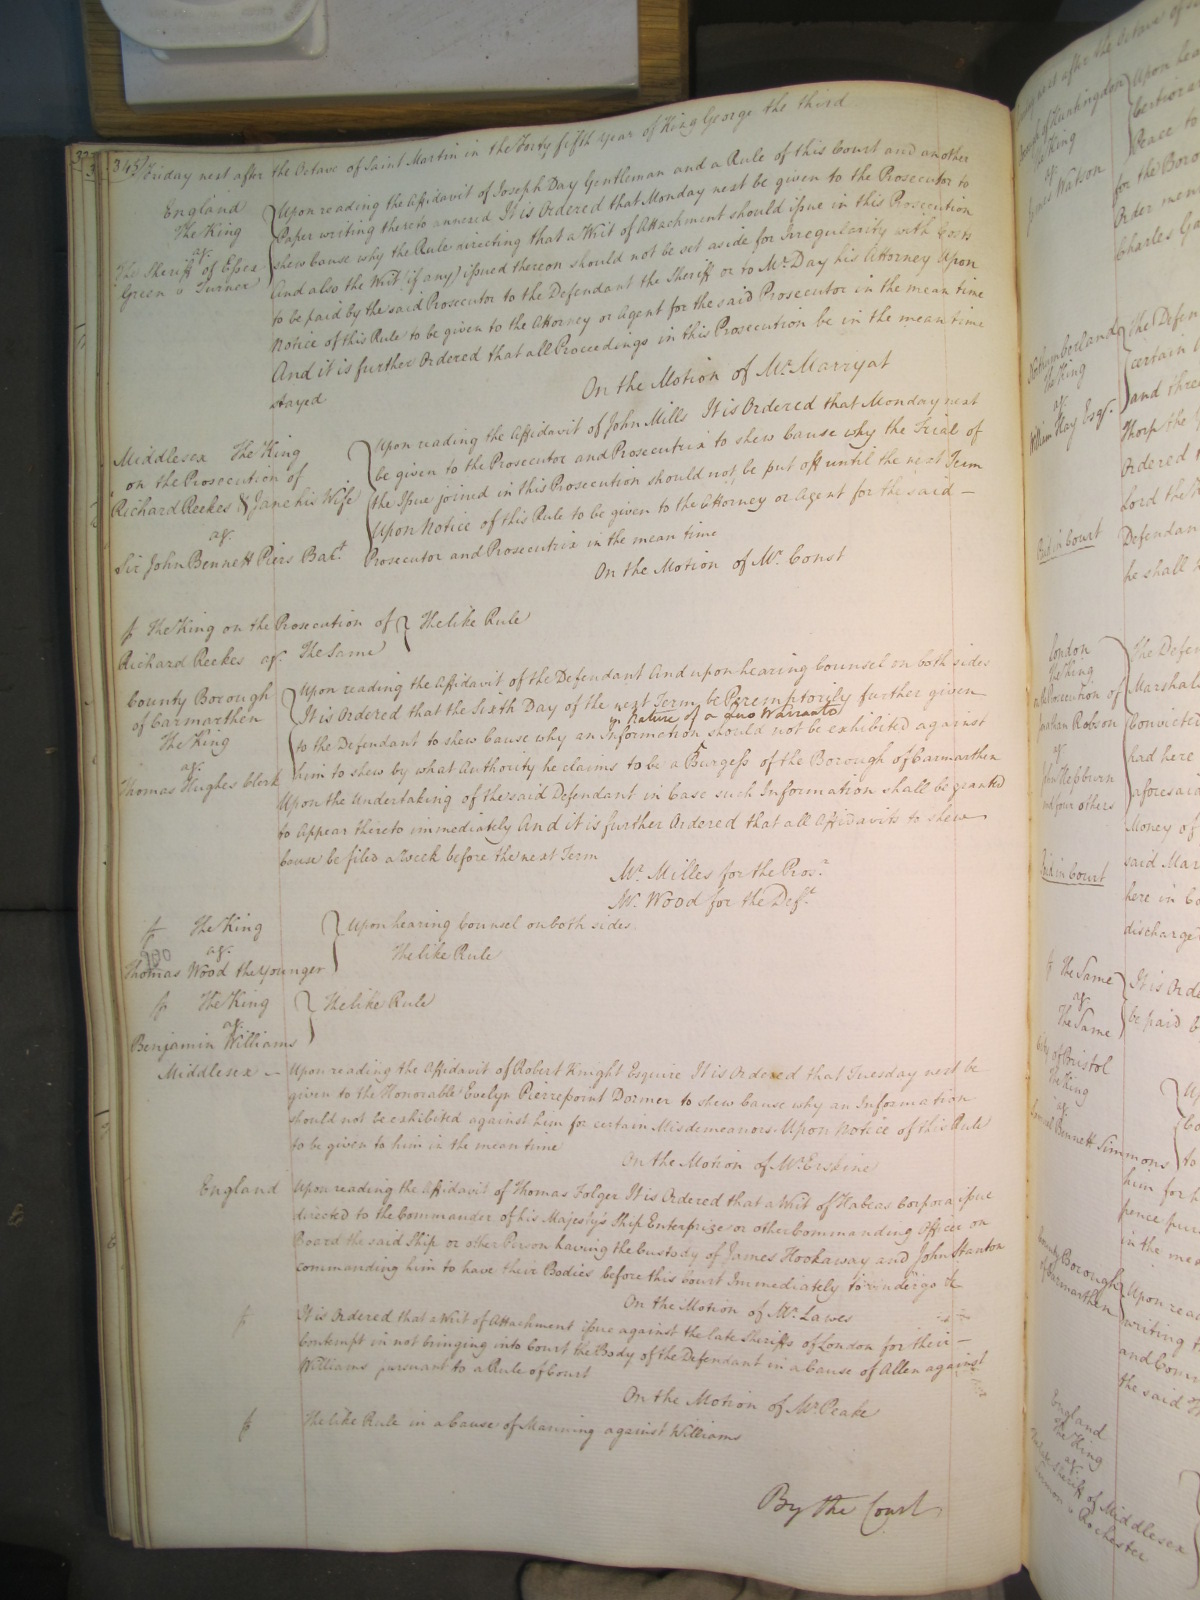 345 Friday next after the Octave of Saint Martin in the Forty fifth year of King George the third
England
The King
agt.
The Sheriff of Essex
Green v Turner
Upon reading the Affidavit of Joseph Day Gentleman and a Rule of this Court and another
Paper writing thereto annexed It is Ordered that Monday next be given to the Prosecutor to
shew Cause why the Rule directing that a Writ of Attachment should issue in this Prosecution
And also the Writ (if any) issued thereon should not be set aside for Irregularity with Costs
to be paid by the said Prosecutor to the Defendant the Sheriff or to Mr. Day his Attorney Upon
Notice of this Rule to be given to the Attorney or Agent for the said Prosecutor in the mean time
And it is further Ordered that all Proceedings in this Prosecution be in the mean time
stayed
On the Motion of Mr. Marryat
Middlesex The King
on the Prosecution of
Richard Reekes & Jane his Wife
agt.
Sir John Bennett Piers Bart.
Upon reading the Affidavit of John Mills It is Ordered that Monday next
be given to the Prosecutor and Prosecutrix to shew Cause why the Trial of
the Issue joined in this Prosecution should not be put off until the next Term
Upon Notice of this Rule to be given to the Attorney or Agent for the said —
Prosecutor and Prosecutrix in the mean time
On the Motion of Mr. Const
The King on the Prosecution of
Richard Reekes agt. The Same
The like Rule
County Borough
of Carmarthen
The King
agt.
Thomas Hughes Clerk
Upon reading the Affidavit of the Defendant And upon hearing Counsel on both sides
It is Ordered that the Sixth Day of the next Term be Peremptorily further given
in Nature of a Quo Warranto
to the Defendant to shew Cause why an Information should not be exhibited against
him to shew by what Authority he claims to be a Burgess of the Borough of Carmarthen
Upon the Undertaking of the said Defendant in Case such Information shall be granted
to Appear thereto immediately And it is further Ordered that all Affidavits to shew
Cause be filed a Week before the next Term
Mr. Milles for the Pros.r
Mr. Wood for the Def.t
The King
agt.
Thomas Wood the younger
Upon hearing Counsel on both sides
The like Rule
The King
agt.
Benjamin Williams
The like Rule
Middlesex —
Upon reading the Affidavit of Robert Knight Esquire It is Ordered that Tuesday next be
given to the Honorable Evelyn Pierrepoint Dormer to shew Cause why an Information
should not be exhibited against him for certain Misdemeanors Upon Notice of this Rule
to be given to him in the mean time
On the Motion of Mr. Erskine
England
Upon reading the Affidavit of Thomas Folger It is Ordered that a Writ of Habeas Corpora issue
directed to the Commander of his Majesty's Ship Enterprize or other Commanding Officer on
Board the said Ship or other Person having the Custody of James Hookaway and John Stanton
commanding him to have their Bodies before this Court Immediately to undergo &c
On the Motion of Mr. Lawes
It is Ordered that a Writ of Attachment issue against the late Sheriffs of London for their —
Contempt in not bringing into Court the Body of the Defendant in a Cause of Allen against
Williams pursuant to a Rule of Court
On the Motion of Mr. Peake
The like Rule in a Cause of Manning against Williams
By the Court
of Huntingdon
The King
agt.
James Watson
Upon
Certiorari
Peace to
for the Boro
Order men
Charles Ga
Northumberland
The King
agt.
William Hay Esqr.
The Defen
certain
and three
Thorp the
Ordered
Lord the
Defendan
he shall
Paid in Court
London
The King
on the Prosecution of
Jonathan Robson
agt.
John Hepburn
and four others
The Defen
Marshal
Convicted
had here
aforesaid
Money of
said Mar
here in Co
discharge
Paid in Court
The Same
agt.
The Same
It is Orde
be paid
City of Bristol
The King
agt.
Samuel Bennett Simmons
Up
to
him for
pence pur
in the mea
County Borough
of Carmarthen
Upon rea
writing
and Com
the said
England
The King
agt.
The late Sheriff of Middlesex
v Rochester